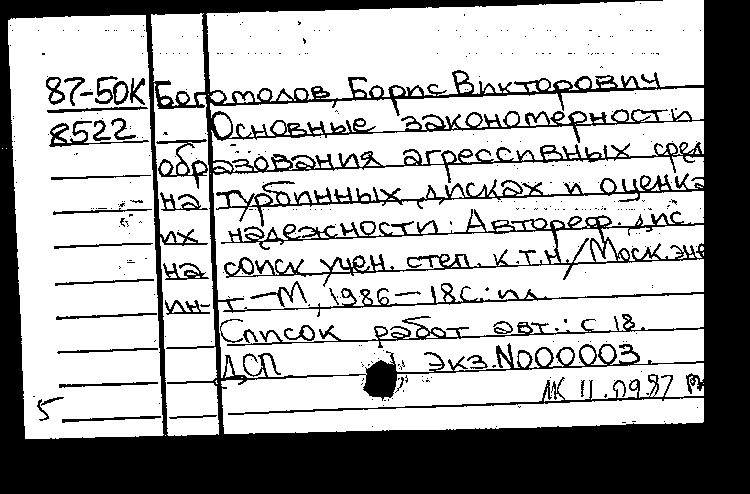 87-50К Богомолов, Борис Викторович
8522 Основные закономерности
образования агрессивных сред
на турбинных дисках и оценка
их надежности: Автореф. дис
на соиск учен. степ. к.т.н./Моск. эне
ин-т.-М, 1986-18с.: ил.
Список работ авт.: с 18.
ДСП Экз.N000003.
МК 11.0987
5